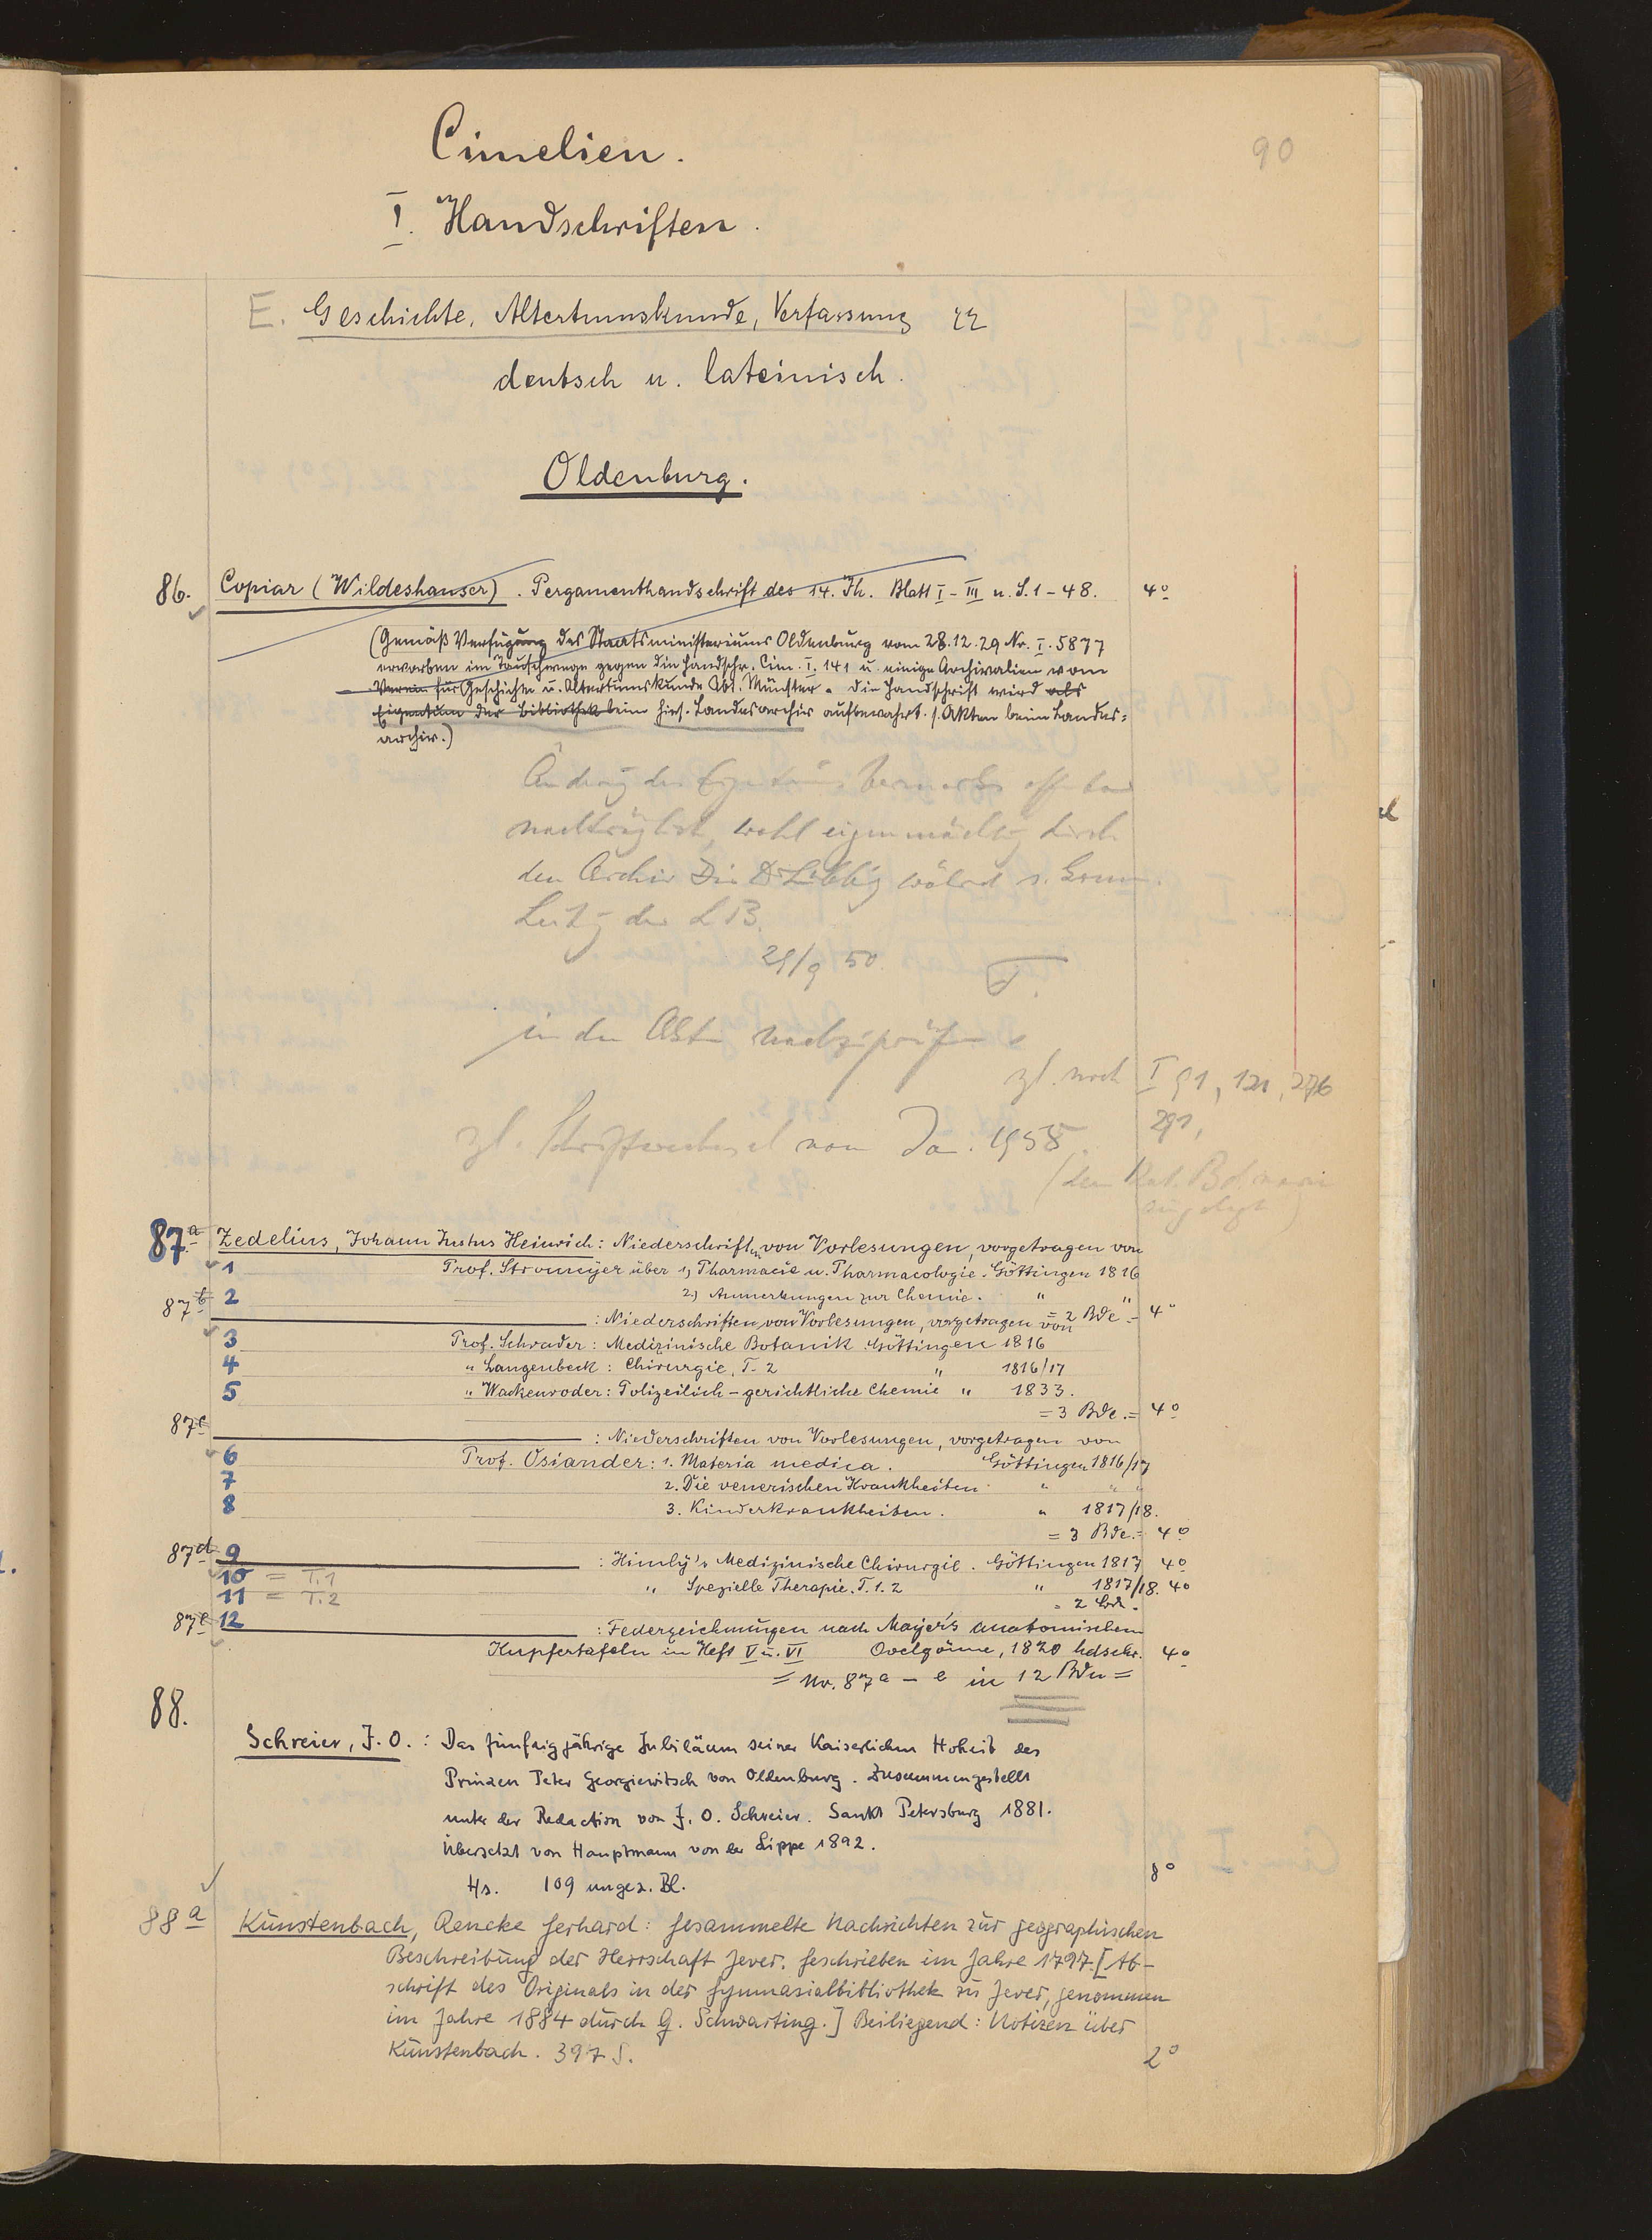 90
Cimelien.
I. Handschriften.
E. Geschichte, Altertumskunde, Verfassung
deutsch u. lateinisch.
Oldenburg.
86. Copiar (Wildeshauser). Pergamenthandschrift des 14. Jh. Blatt I-III u. S. 1-48. 4°
(Gemäß Verfügung des Staatsministeriums Oldenburg vom 28.12.29 Nr. I. 5877
erworben im Tauschwege gegen die Handschr. Cim. I. 141 u. einige Archivalien vom
Verein für Geschichte u. Altertumskunde Abt. Münster. Die Handschrift wird als
Eigentum der Bibliothek beim hies. Landesarchiv aufbewahrt. s. Akten beim Landes=
archiv.)
nachträglich, wohl eigenmächtig durch
den Archiv Dir Dr Lübbing
der LB.
29/9 50
in den Akten nachzuprüfen
vgl. noch I 91, 121, 276
291,
vgl. Schriftwechsel vom Ja. 1958
87a Zedelius, Johann Justus Heinrich: Niederschriften von Vorlesungen, vorgetragen von
1 Prof. Stromeyer über 1) Pharmacie u. Pharmacologie. Göttingen 1816
87b 2 2) Anmerkungen zur Chemie. " "
= 2 Bde = 4°
: Niederschriften von Vorlesungen, vorgetragen von
3 Prof. Schrader: Medizinische Botanik. Göttingen 1816
4 " Langenbeck: Chirurgie, T. 2 " 1816/17
5 " Wackenroder: Polizeilich-gerichtliche Chemie " 1833.
= 3 Bde. = 4°
87c : Niederschriften von Vorlesungen, vorgetragen von
6 Prof. Osiander: 1. Materia medica. Göttingen 1816/17
7 2. Die venerischen Krankheiten " " "
8 3. Kinderkrankheiten. " 1817/18.
= 3 Bde. = 4°
87d 9 : Himly's Medizinische Chirurgie. Göttingen 1817 4°
10 = T. 1 " Spezielle Therapie. T. 1. 2 " 1817/18. 4°
11 = T. 2 = 2 Bde.
87e 12 : Federzeichnungen nach Mayer's anatomischen
Kupfertafeln in Heft V u. VI Ovelgönne, 1820 hdschr. 4°
= Nr. 87a - e in 12 Bdn =
88.
Schreier, J. O.: Das fünfzigjährige Jubiläum seiner Kaiserlichen Hoheit des
Prinzen Peter Georgiewitsch von Oldenburg. Zusammengestellt
unter der Redaction von J. O. Schreier. Sankt Petersburg 1881.
Übersetzt von Hauptmann von der Lippe 1892.
Hs. 109 ungez. Bl. 8°
88a Kunstenbach, Rencke Gerhard: Gesammelte Nachrichten zur geographischen
Beschreibung der Herrschaft Jever. Geschrieben im Jahre 1797. [Ab-
schrift des Originals in der Gymnasialbibliothek zu Jever, genommen
im Jahre 1884 durch G. Schwarting.] Beiliegend: Notizen über
Kunstenbach. 397 S. 2°